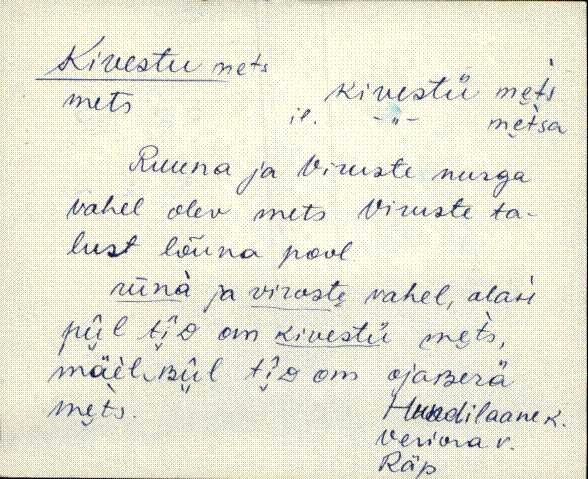 Kivestu mets kivestü mètś
mets il. -"- mètsa
Ruuna ja Viruste nurga
vahel olev mets Viruste ta-
lust lõuna pool
rūna ja viruste vahel, alasi
pūl tīD om kivestü mètś,
mäèl BŪl tīD om ojaBerä
mètś.
Hundilaane k.
Veriora v.
Räp